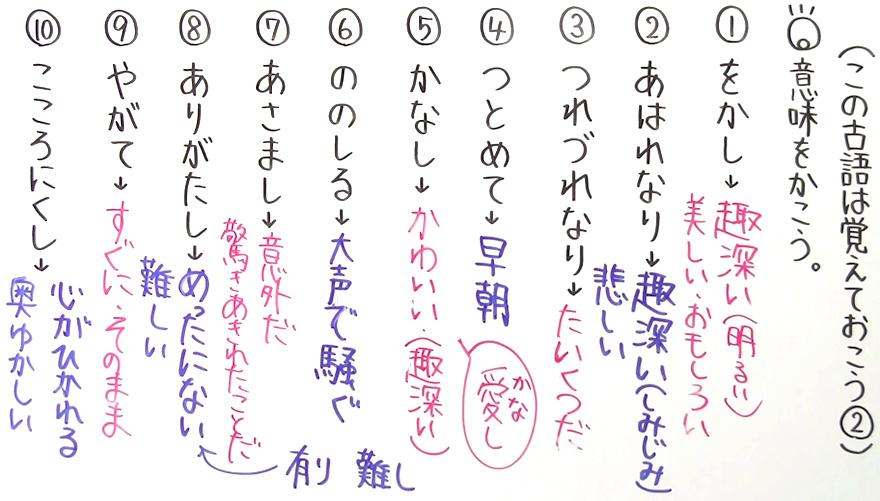 (この古語は覚えておこう②)
意味をかこう。
①をかし→趣深い(明るい)
美しい・おもしろい
②あはれなり→趣深い(しみじみ)
悲しい
③つれづれなり→たいくつだ
④つとめて→早朝
⑤かなし→かわいい・(趣深い)
かな
愛し
⑥ののしる→大声で騒ぐ
⑦あさまし→意外だ
驚きあきれたことだ
⑧ありがたし→めったにない
難しい
有り 難し
⑨やがて→すぐに・そのまま
⑩こころにくし→心がひかれる
奥ゆかしい